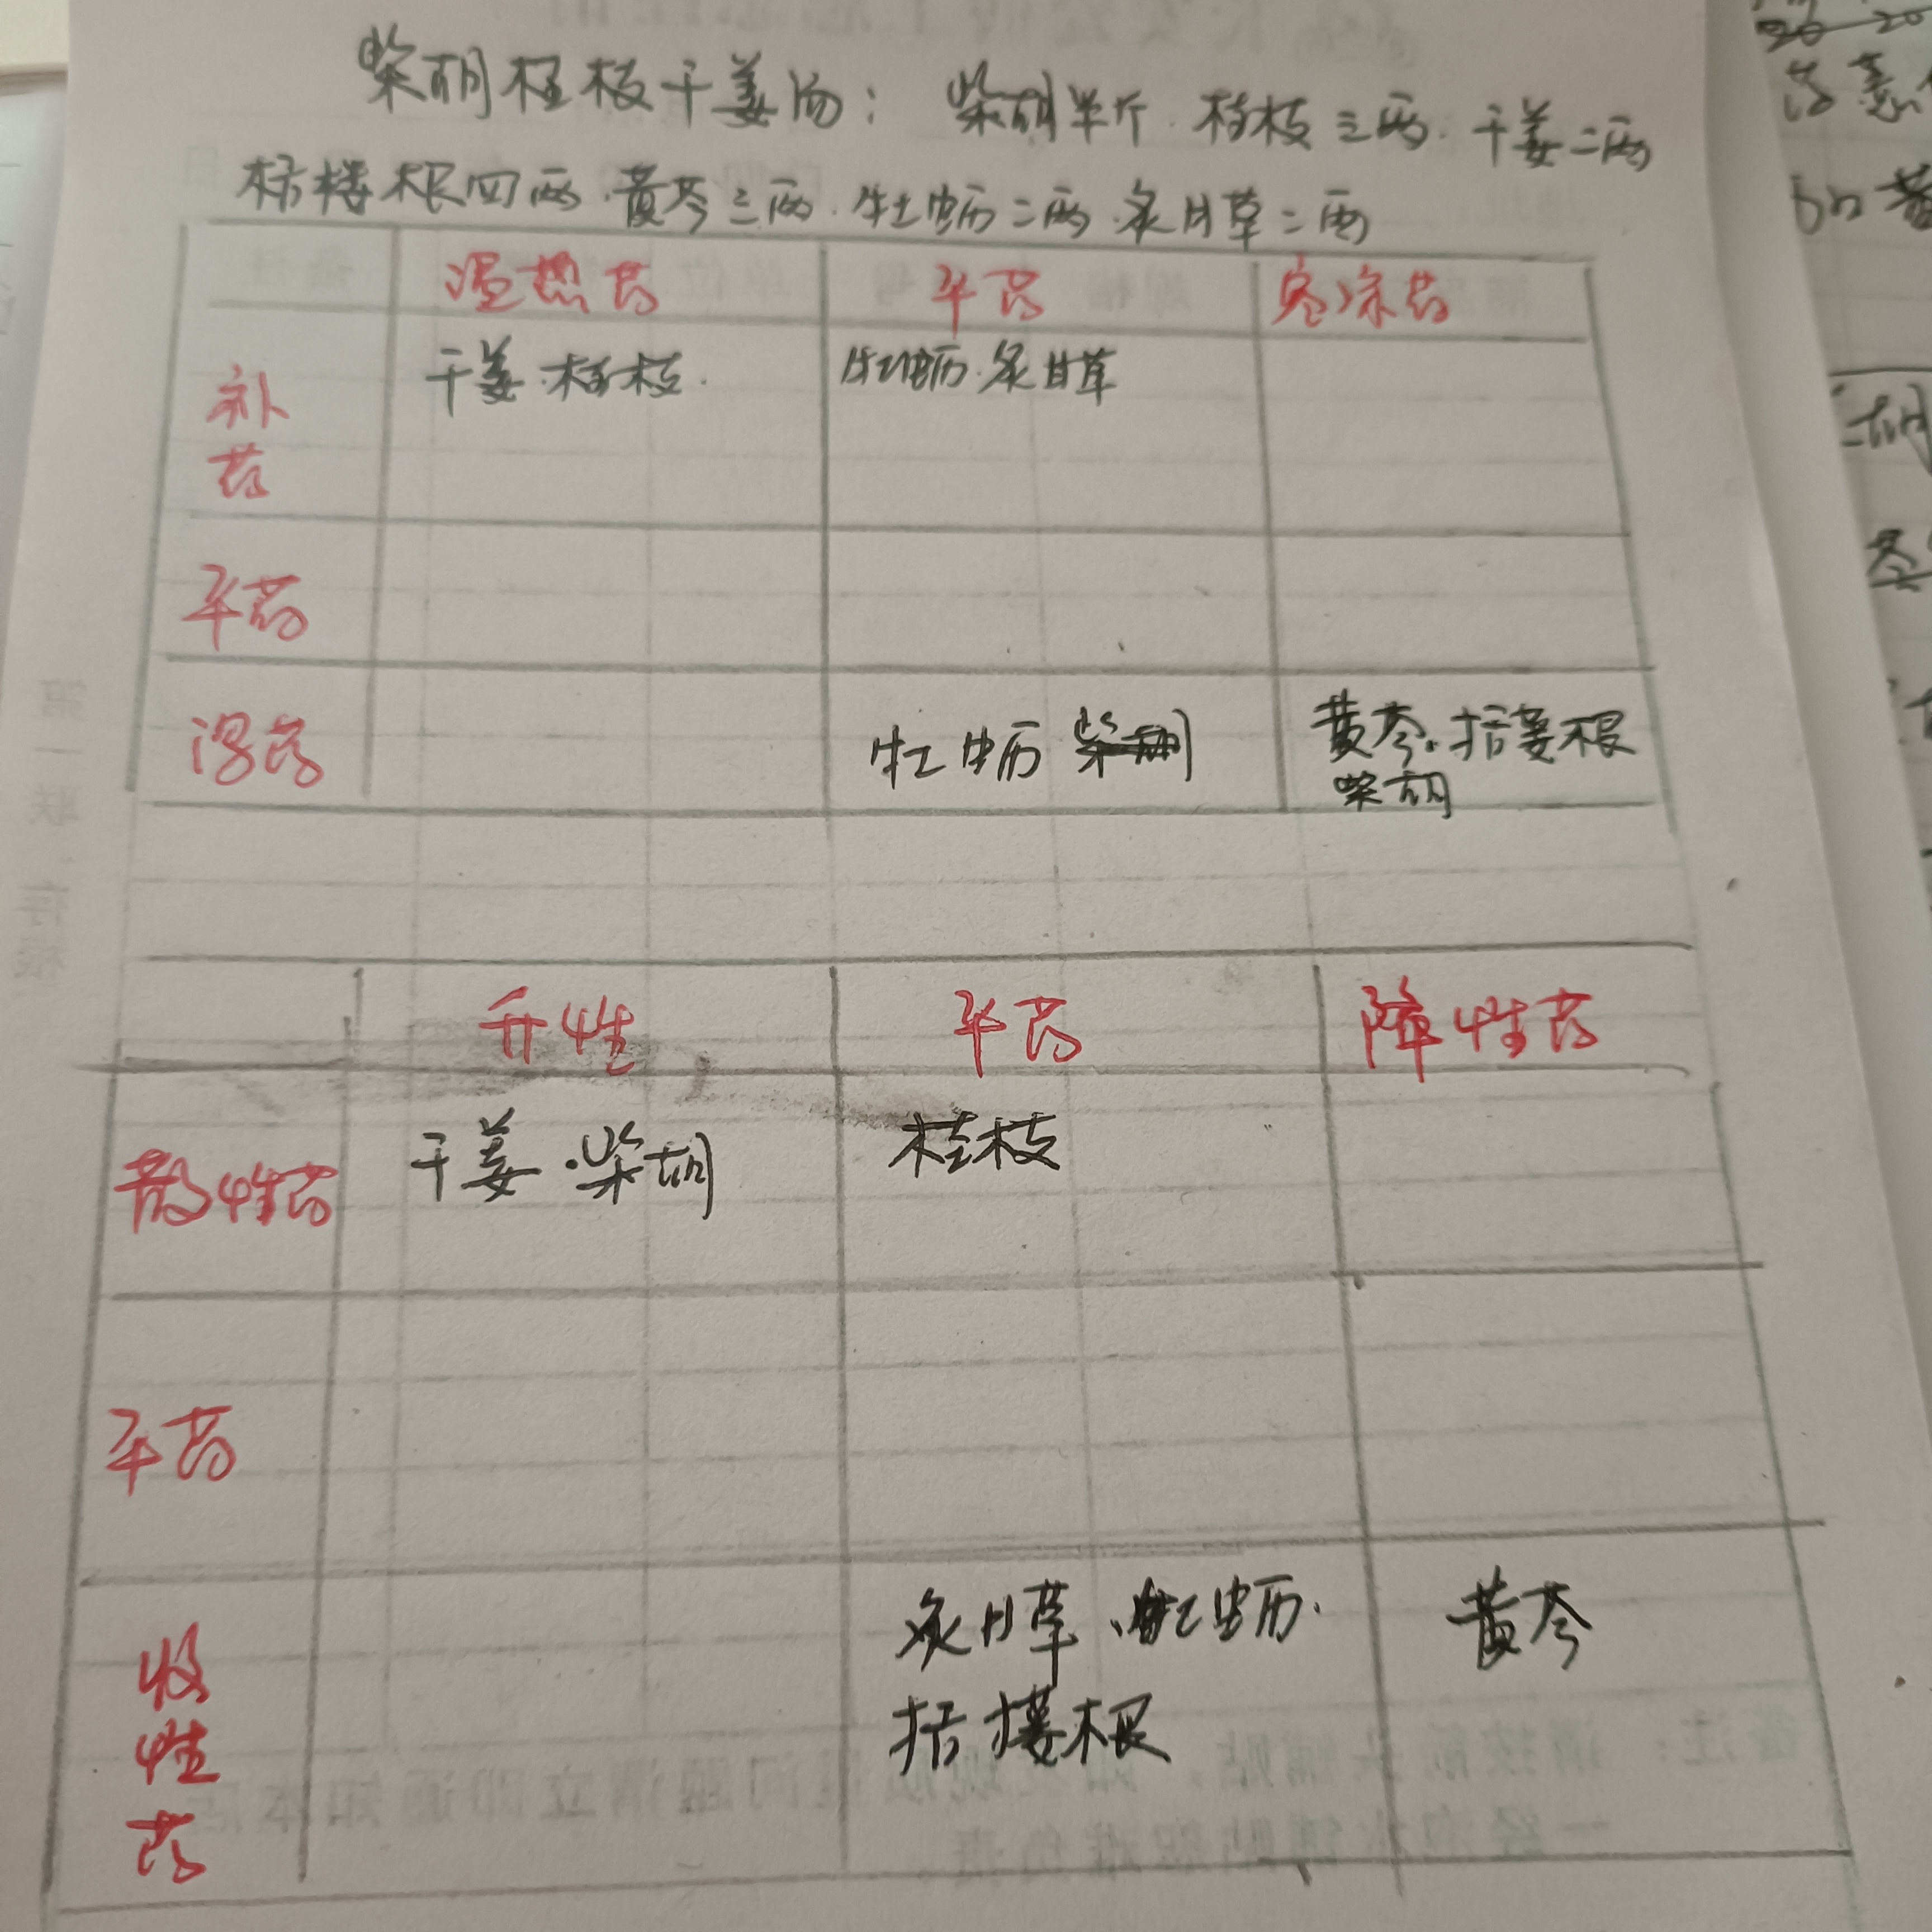 柴胡桂枝干姜汤：柴胡半斤.桂枝三两.干姜二两
栝楼根四两.黄芩三两.牡蛎二两.炙甘草二两
温热药 平药 寒凉药
补药 干姜.桂枝. 牡蛎.炙甘草
平药
泻药 牡蛎 柴胡 黄芩.括蒌根
柴胡
升性 平药 降性药
散性药 干姜.柴胡 桂枝
平药
收性药 炙甘草、牡蛎. 黄芩
括搂根